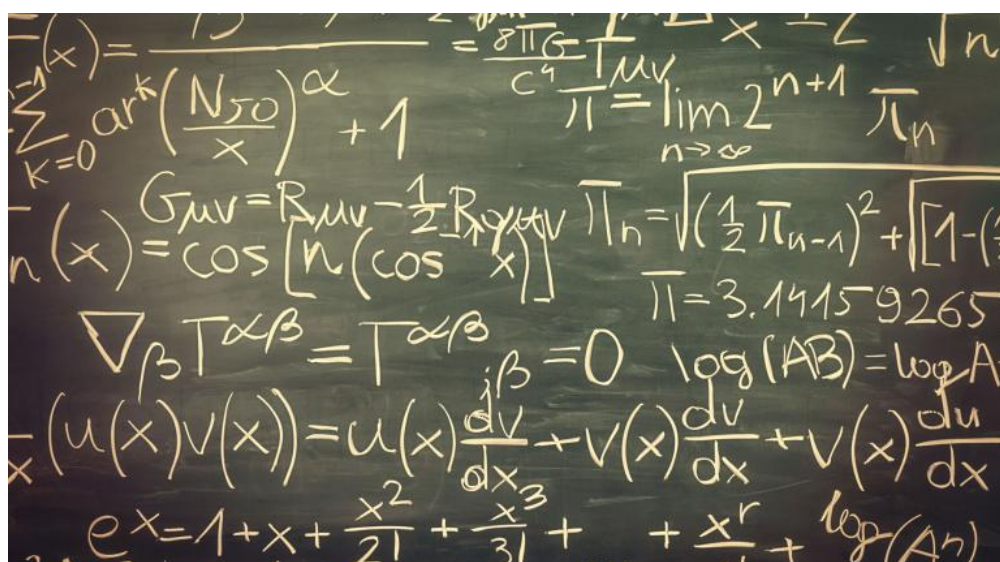 (x) =
= 8πG/c⁴ Tμν
x
√n
n-1 ∑ k=0 ar^k (N50/x)^α + 1
π = lim n→∞ 2^(n+1) πn
Gμν = Rμν - 1/2 R
πn = √((1/2 πn-1)² + √[1-(
n(x) = cos[n(cos x)]
π = 3.14159265
∇β T^αβ = T^αβ jβ = 0
log(AB) = log A
x (u(x)v(x)) = u(x) dv/dx + v(x) dv/dx + v(x) du/dx
e^x = 1 + x + x²/2! + x³/3! + + x^r +
log(A^n)